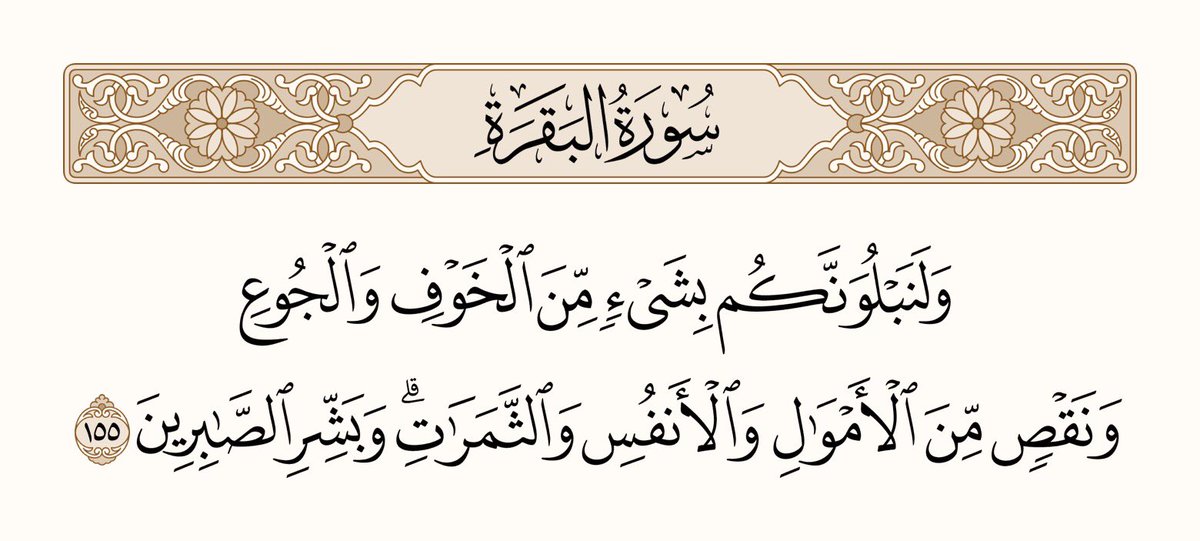 سُورَةُ البَقَرَةِ
وَلَنَبۡلُوَنَّكُم بِشَيۡءٖ مِّنَ ٱلۡخَوۡفِ وَٱلۡجُوعِ
وَنَقۡصٖ مِّنَ ٱلۡأَمۡوَٰلِ وَٱلۡأَنفُسِ وَٱلثَّمَرَٰتِۗ وَبَشِّرِ ٱلصَّٰبِرِينَ ١٥٥